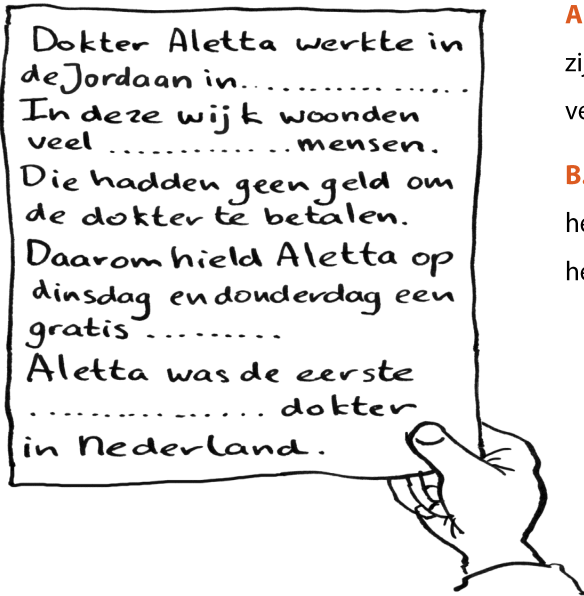 Dokter Aletta werkte in
de Jordaan in.................
In deze wijk woonden
veel ..............mensen.
Die hadden geen geld om
de dokter te betalen.
Daarom hield Aletta op
dinsdag en donderdag een
gratis .........
Aletta was de eerste
................ dokter
in Nederland.
A
B.